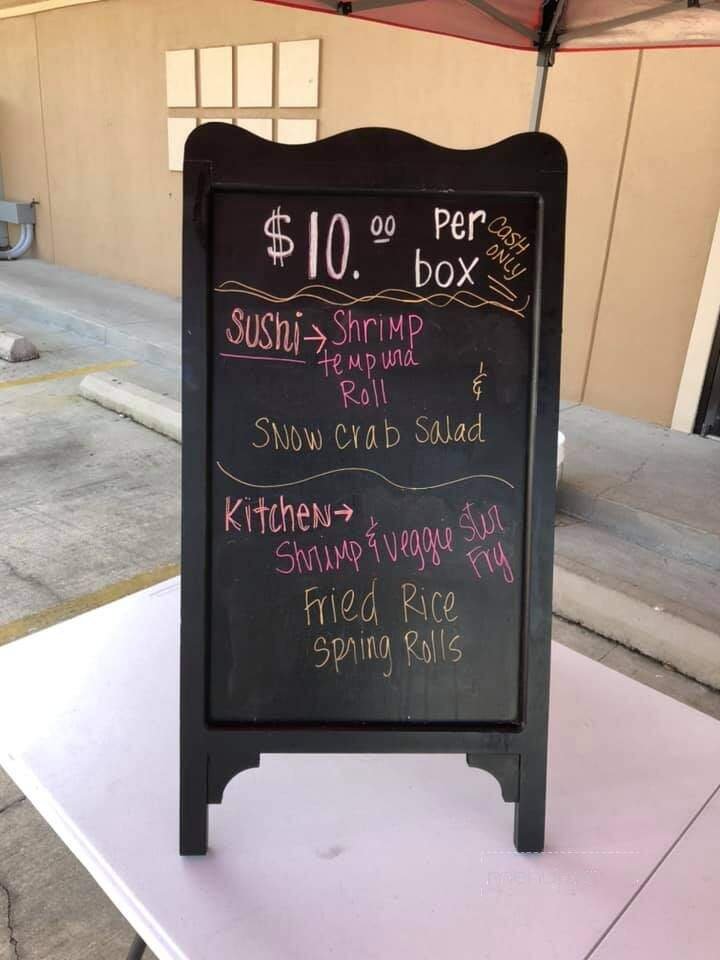 $10.00 per box
CASH ONLY
Sushi → Shrimp
tempura
Roll &
Snow crab Salad
Kitchen →
Shrimp & veggie Stir
Fry
Fried Rice
Spring Rolls